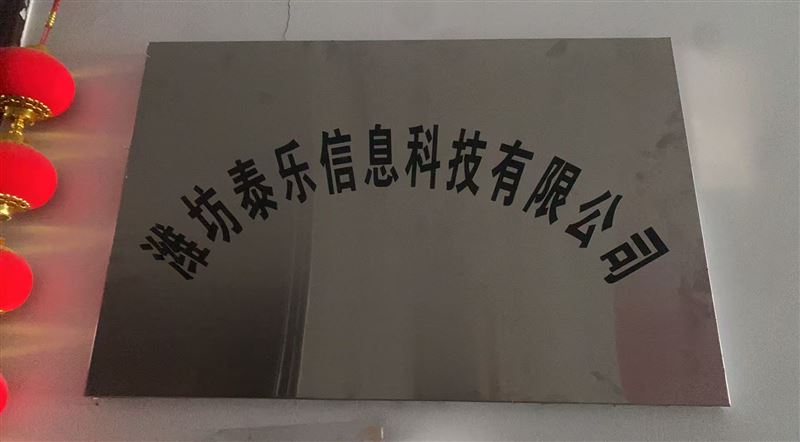 潍坊泰乐信息科技有限公司